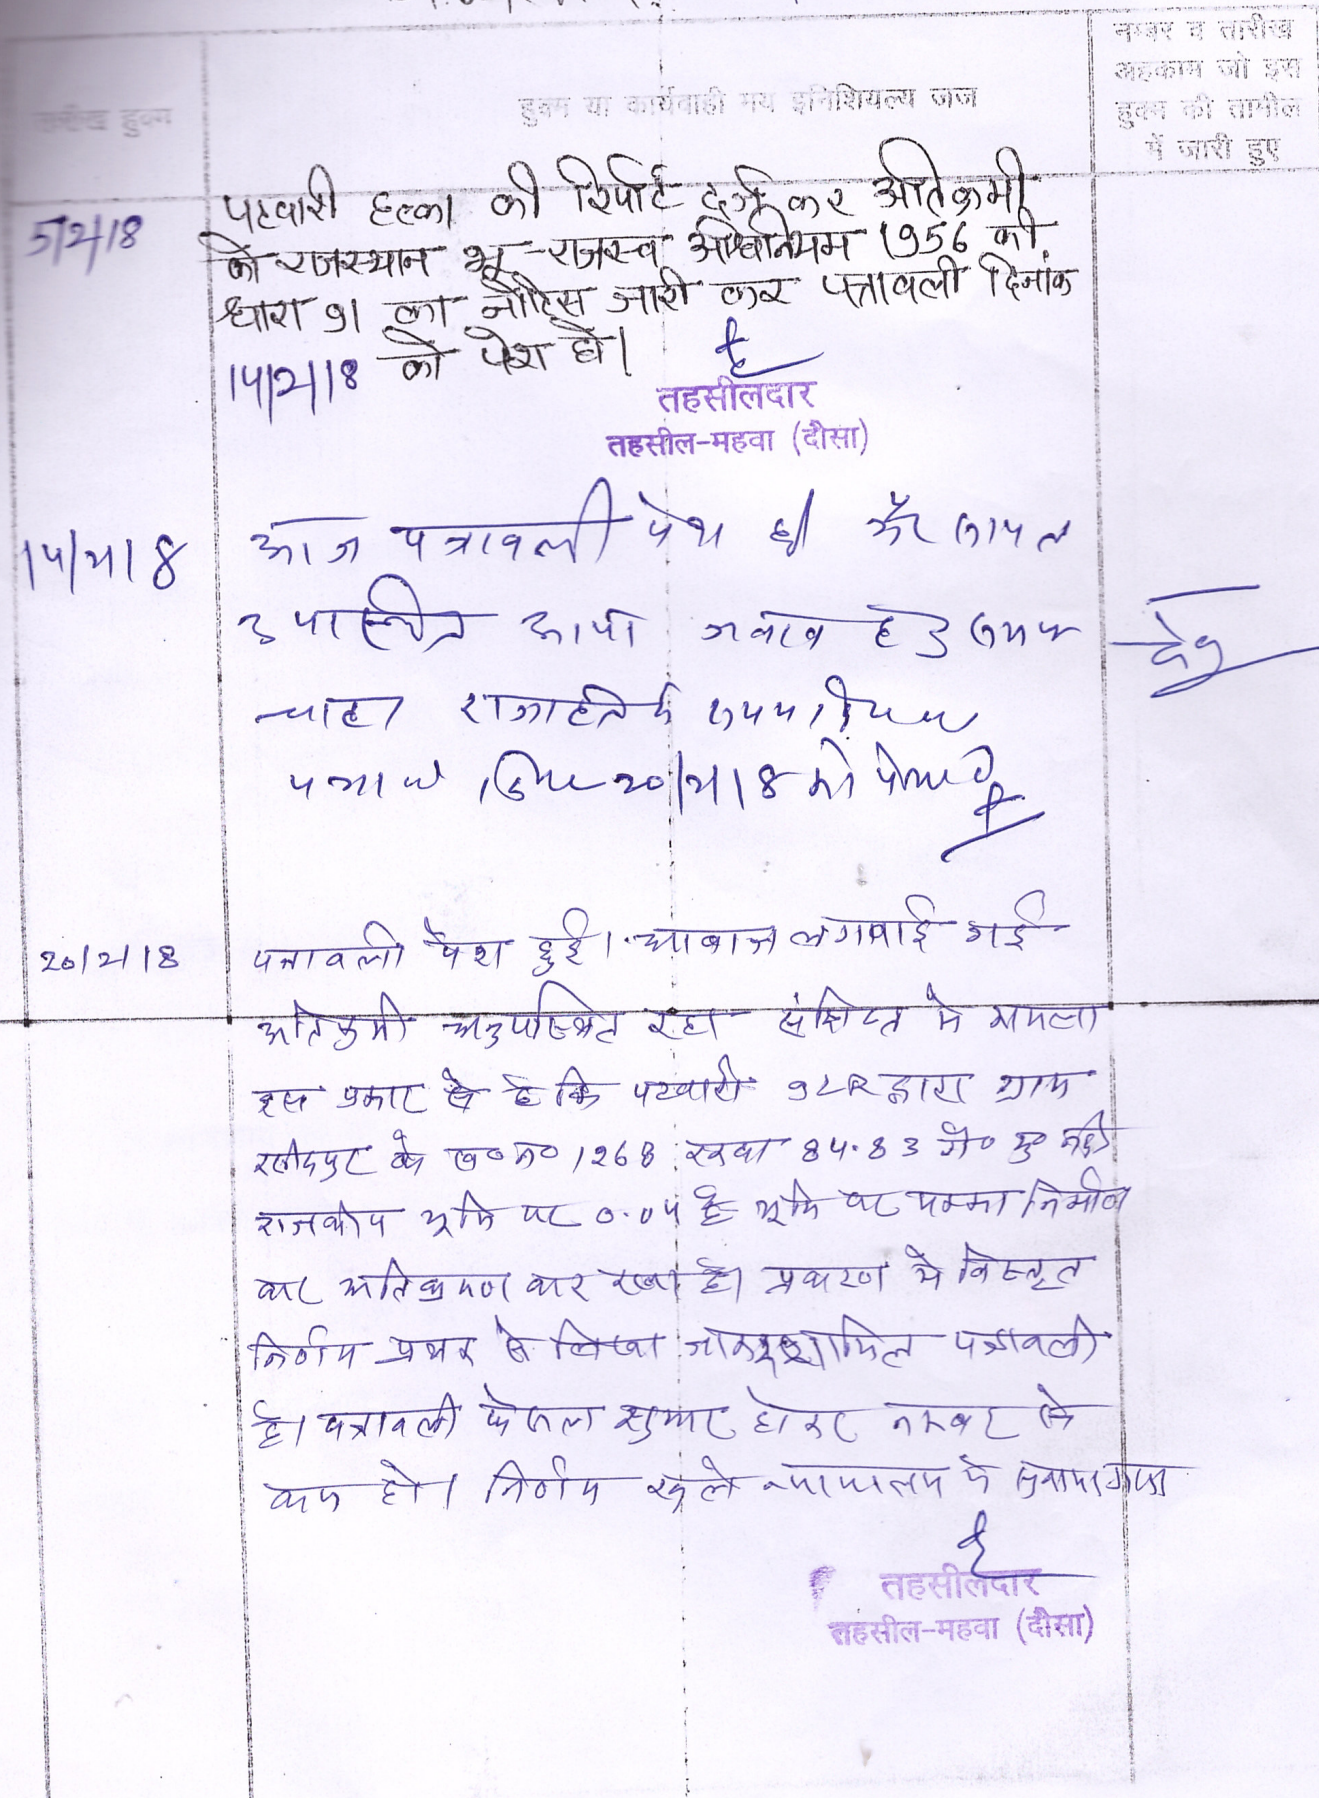 नम्बर व तारीख
अहकाम जो इस
हुक्म की तामील
में जारी हुए
तारीख हुक्म
हुक्म या कार्यवाही मय इनिशियल्य जज
5/2/18
पटवारी हल्का की रिपोर्ट दर्ज कर अतिक्रमी
को राजस्थान भू-राजस्व अधिनियम 1956 की
धारा 91 का नोटिस जारी कर पत्रावली दिनांक
14/2/18 को पेश हो।
तहसीलदार
तहसील-महवा (दौसा)
14/2/18
आज पत्रावली पेश हुई
उपस्थित आया जवाब हेतु समय
चाहा
20/2/18 को पेश हो
20/2/18
पत्रावली पेश हुई। आवाज लगवाई गई
अतिक्रमी अनुपस्थित रहा संक्षिप्त मे मामला
इस प्रकार से है कि पटवारी हल्का द्वारा ग्राम
के ख० न० 1268 रकबा 84.83 गै० मु०
राजकीय भूमि पर 0.04 है भूमि पर पक्का निर्माण
कर अतिक्रमण कर रखा है। प्रकरण मे विस्तृत
निर्णय पृथक से लिखा जाकर शामिल पत्रावली
है। पत्रावली फैसल शुमार होकर नम्बर से
कम हो। निर्णय खुले न्यायालय मे सुनाया गया
तहसीलदार
तहसील-महवा (दौसा)